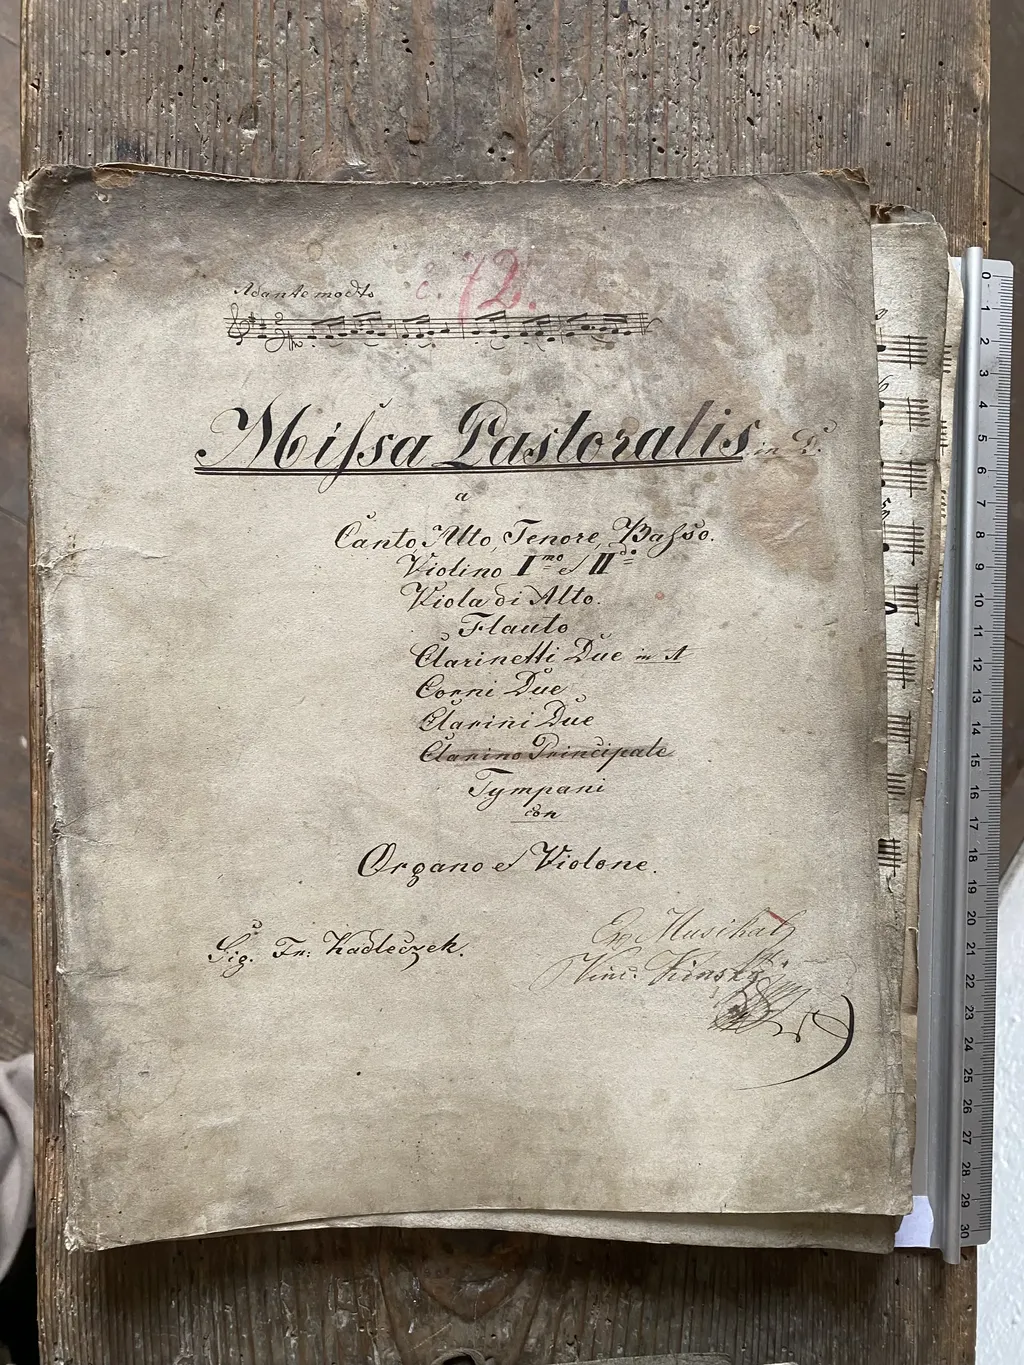 Adante modto
c. 72.
Missa Pastoralis in D.
a
Canto, Alto, Tenore, Basso.
Violino Imo et IIdo
Viola di Alto.
Flauto
Clarinetti Due in A
Corni Due
Clarini Due
Clarino Principale
Tympani
con
Organo et Violone.
Sig. Fr: Kadleczek.
Ex Musikal
Vinc. Kinsky
0 1 2 3 4 5 6 7 8 9 10 11 12 13 14 15 16 17 18 19 20 21 22 23 24 25 26 27 28 29 30